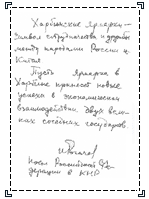 Харбинские ярмарки —
символ сотрудничества и дружбы
между народами России и
Китая
Пусть Ярмарка в
Харбине принесет новые
успехи в экономическом
взаимодействии двух вели-
ких соседних государств.
Посол Российской Фе-
дерации в КНР